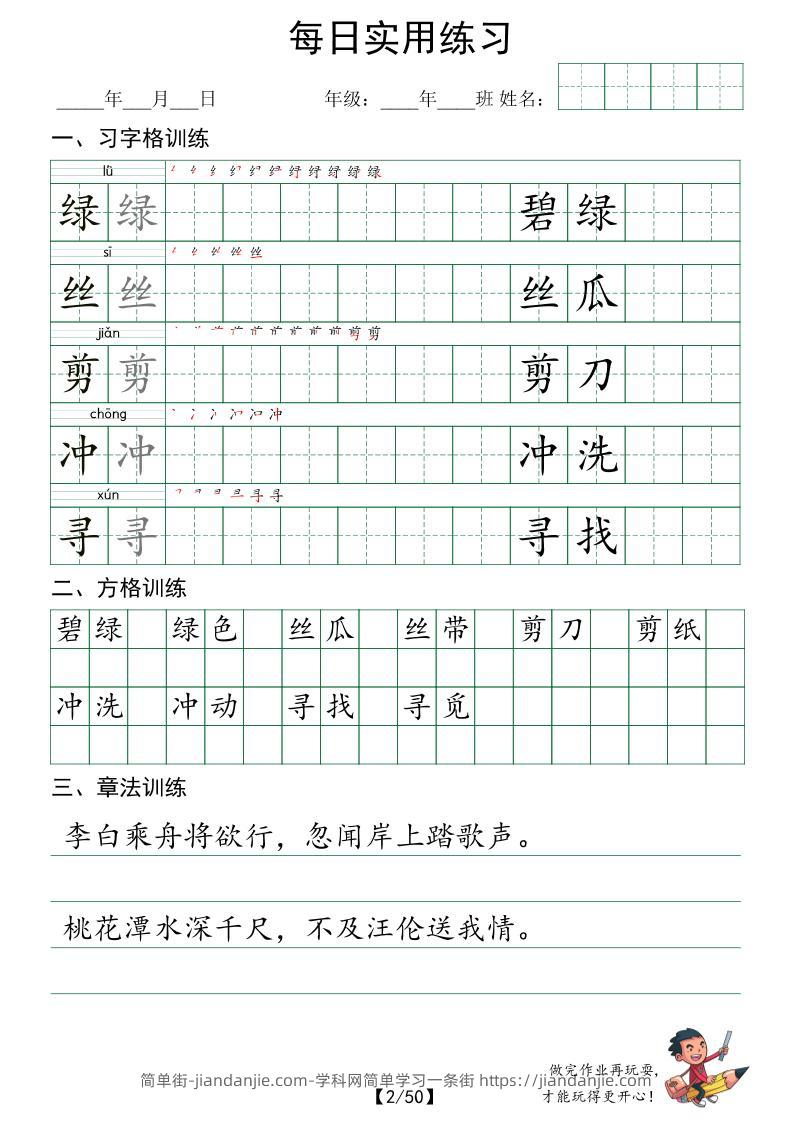 每日实用练习
_____年___月___日 年级：____年____班 姓名：
一、习字格训练
lǜ
绿 绿 碧 绿
sī
丝 丝 丝 瓜
jiǎn
剪 剪 剪 刀
chōng
冲 冲 冲 洗
xún
寻 寻 寻 找
二、方格训练
碧 绿 绿 色 丝 瓜 丝 带 剪 刀 剪 纸
冲 洗 冲 动 寻 找 寻 觅
三、章法训练
李白乘舟将欲行，忽闻岸上踏歌声。
桃花潭水深千尺，不及汪伦送我情。
做完作业再玩耍，
简单街-jiandanjie.com-学科网简单学习一条街 https://jiandanjie.com
才能玩得更开心！
【2/50】